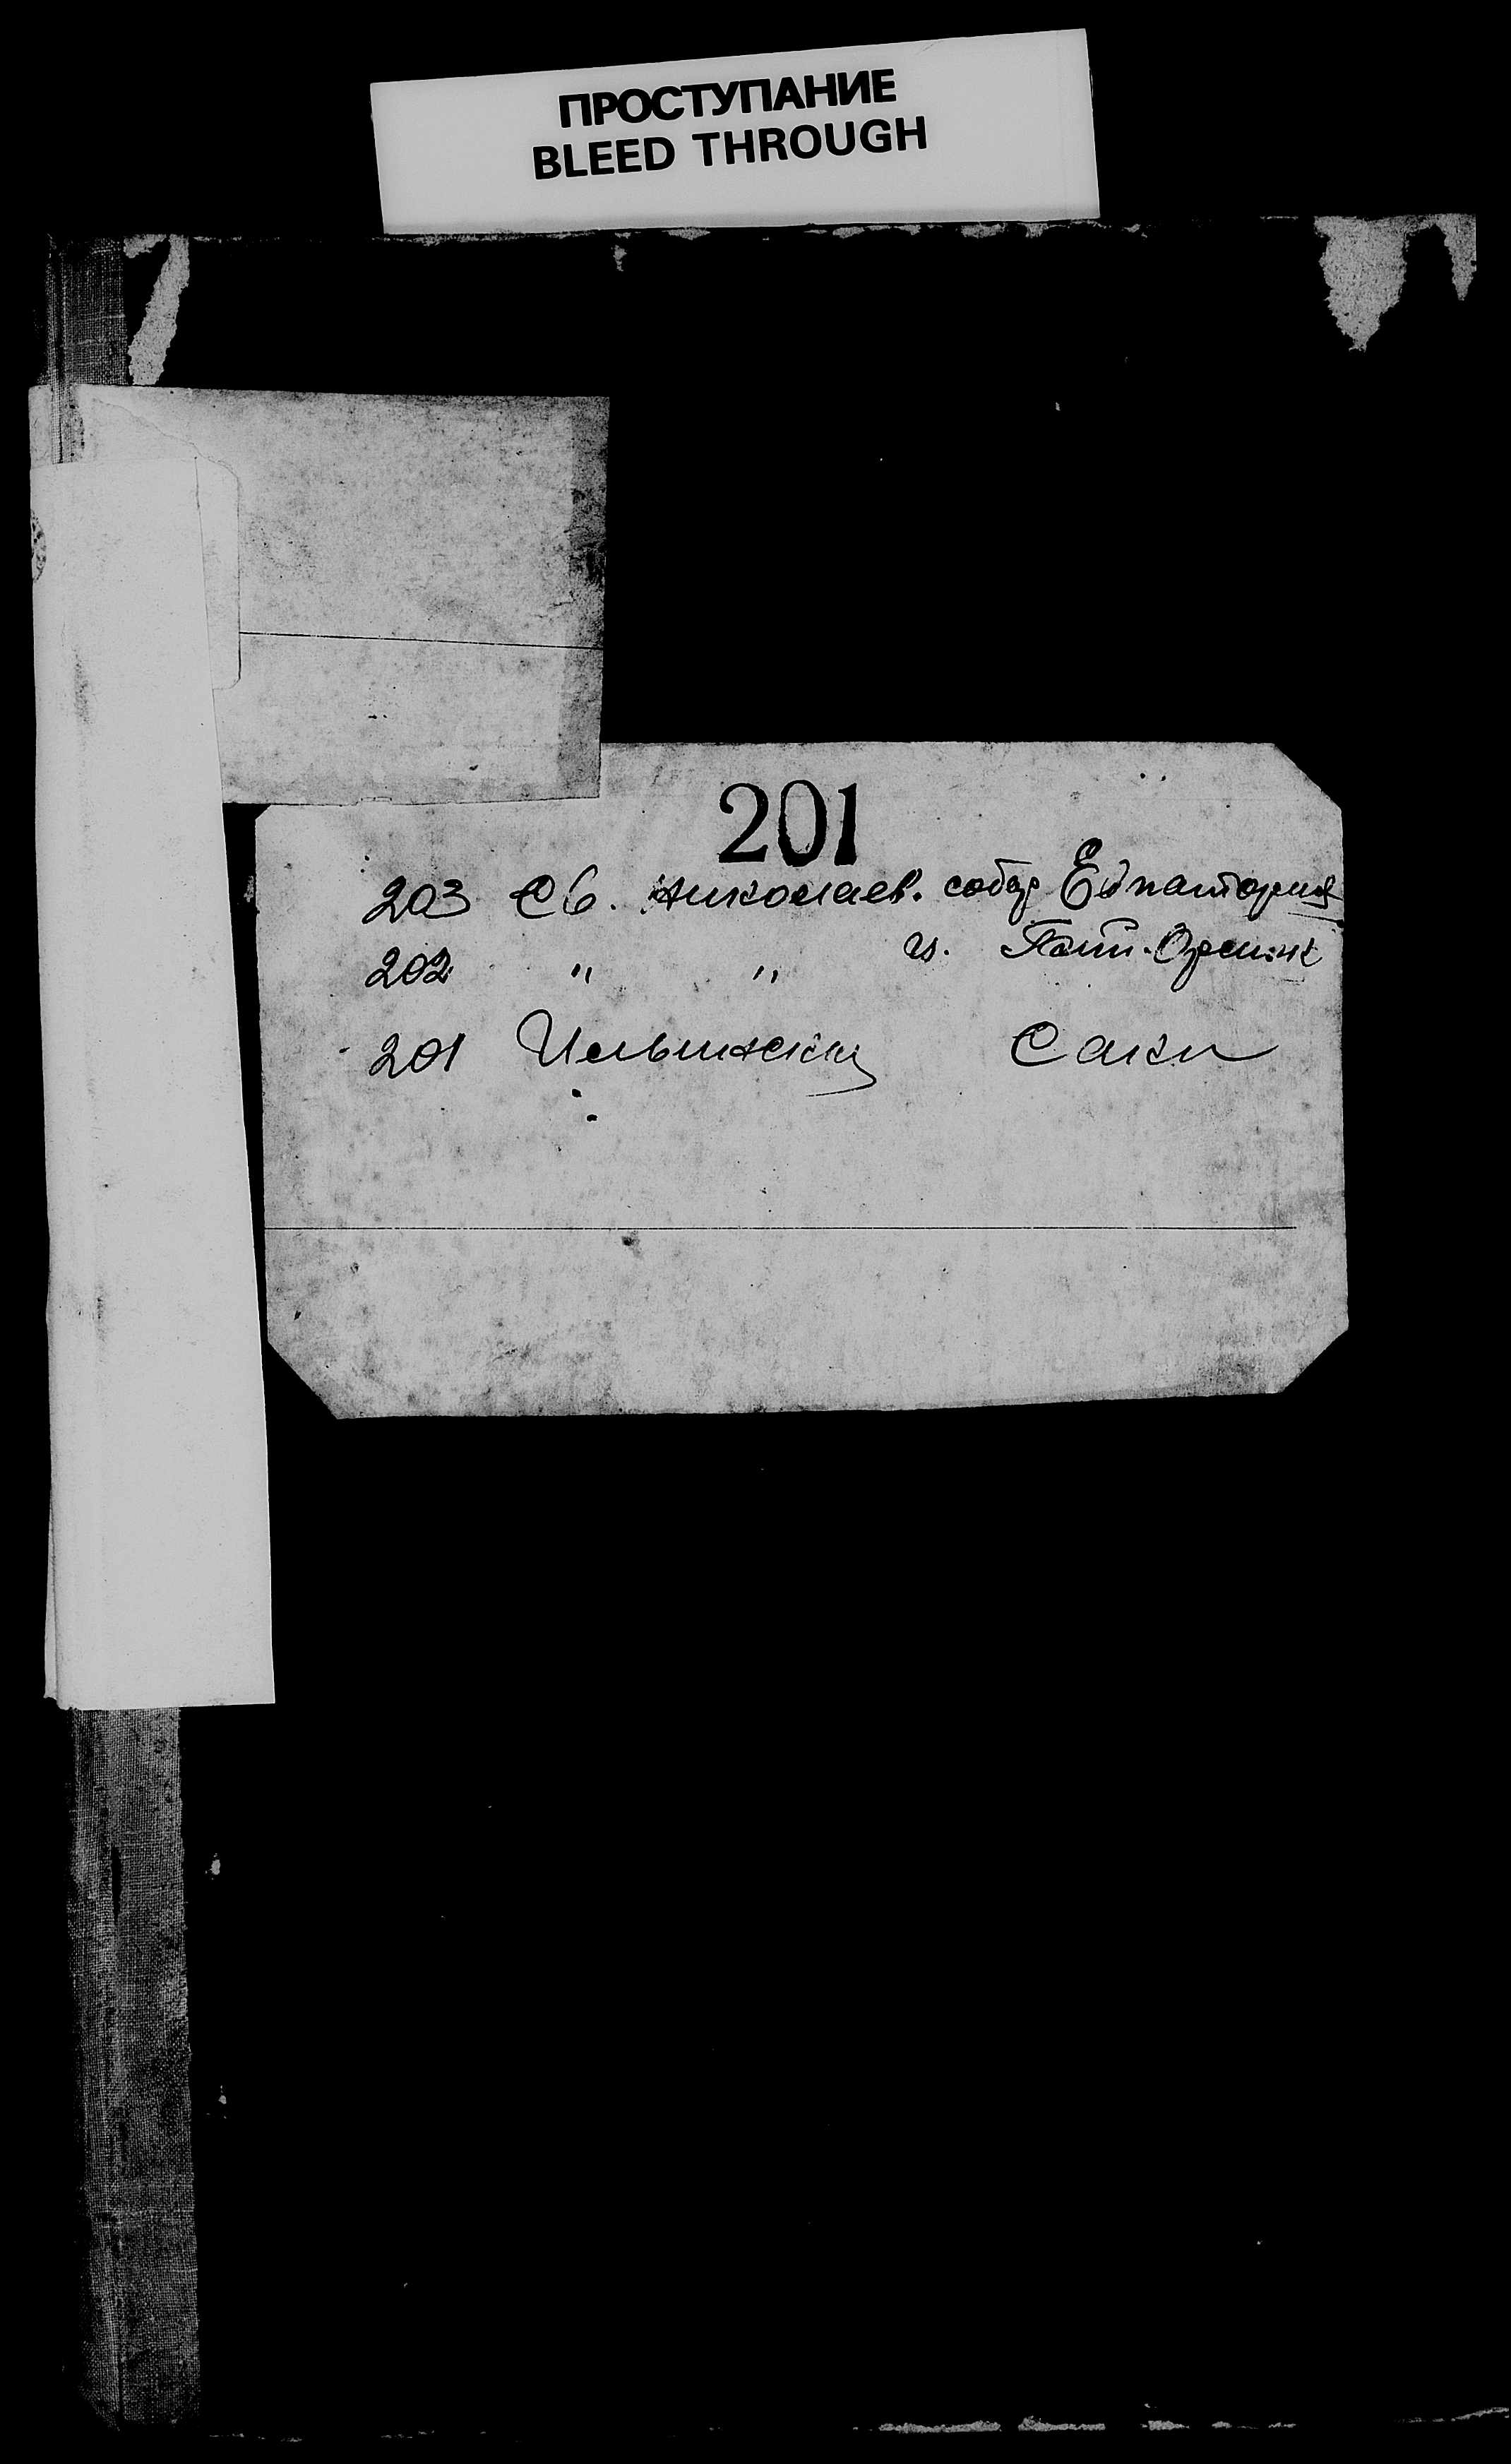 ПРОСТУПАНИЕ
BLEED THROUGH
201
203 Св. Николаев. собор Евпатория
202 " " г.
201 Ильинская Саки